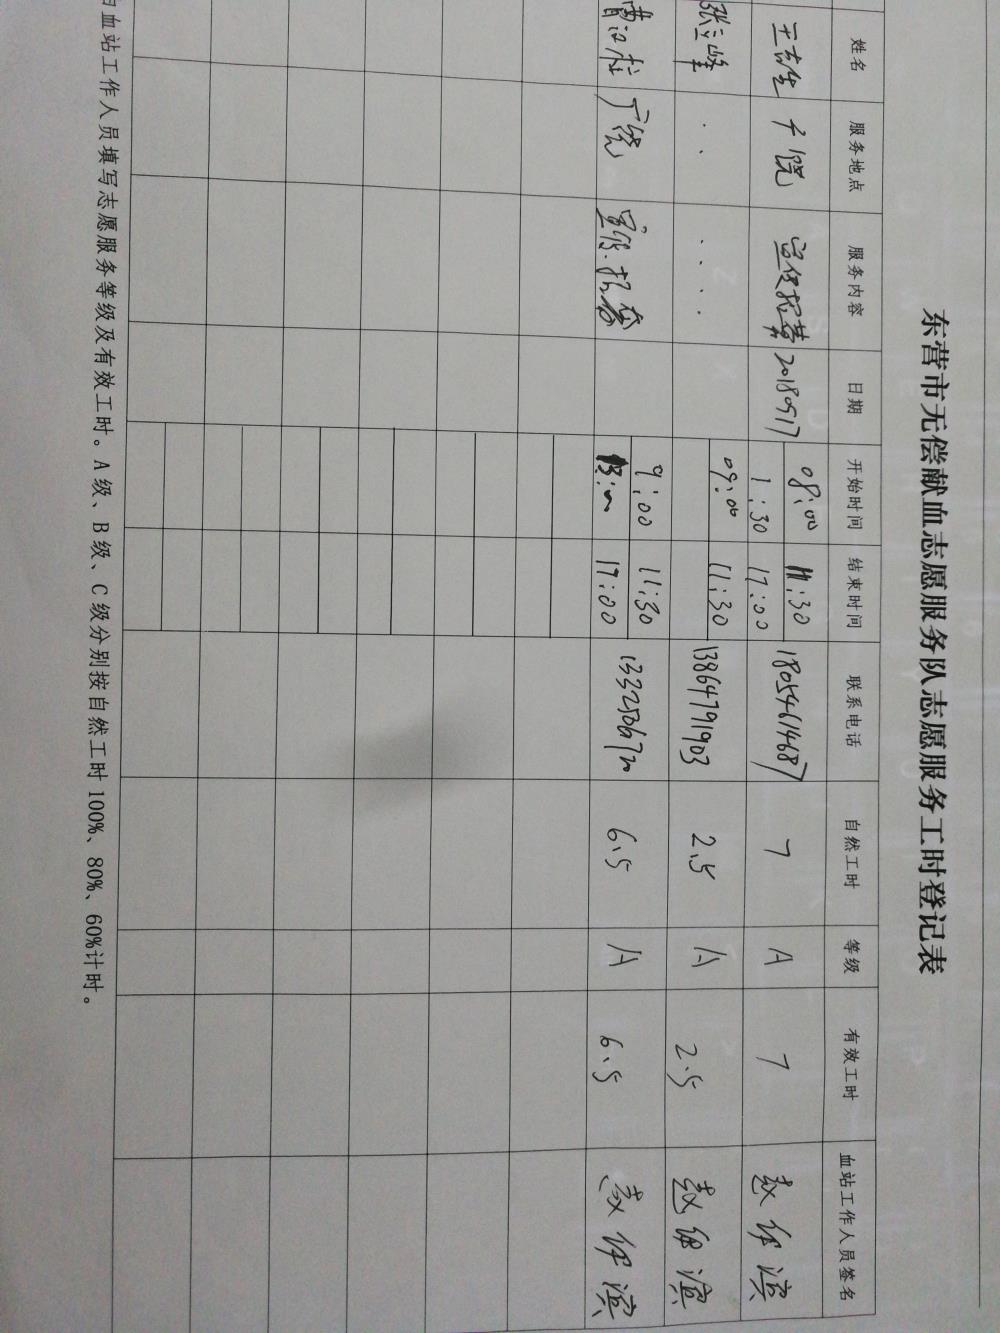 东营市无偿献血志愿服务队志愿服务工时登记表
姓名 服务地点 服务内容 日期 开始时间 结束时间 联系电话 自然工时 等级 有效工时 血站工作人员签名
王吉生 广饶 宣传招募 20180917 08:00 11:30 18054614687 7 A 7
1:30 17:00
张立峰 〃 〃 09:00 11:30 13864791903 2.5 A 2.5
广饶 宣传.招募 9:00 11:30 6.5 A 6.5
17:00
血站工作人员填写志愿服务等级及有效工时。A级、B级、C级分别按自然工时100%、80%、60%计时。